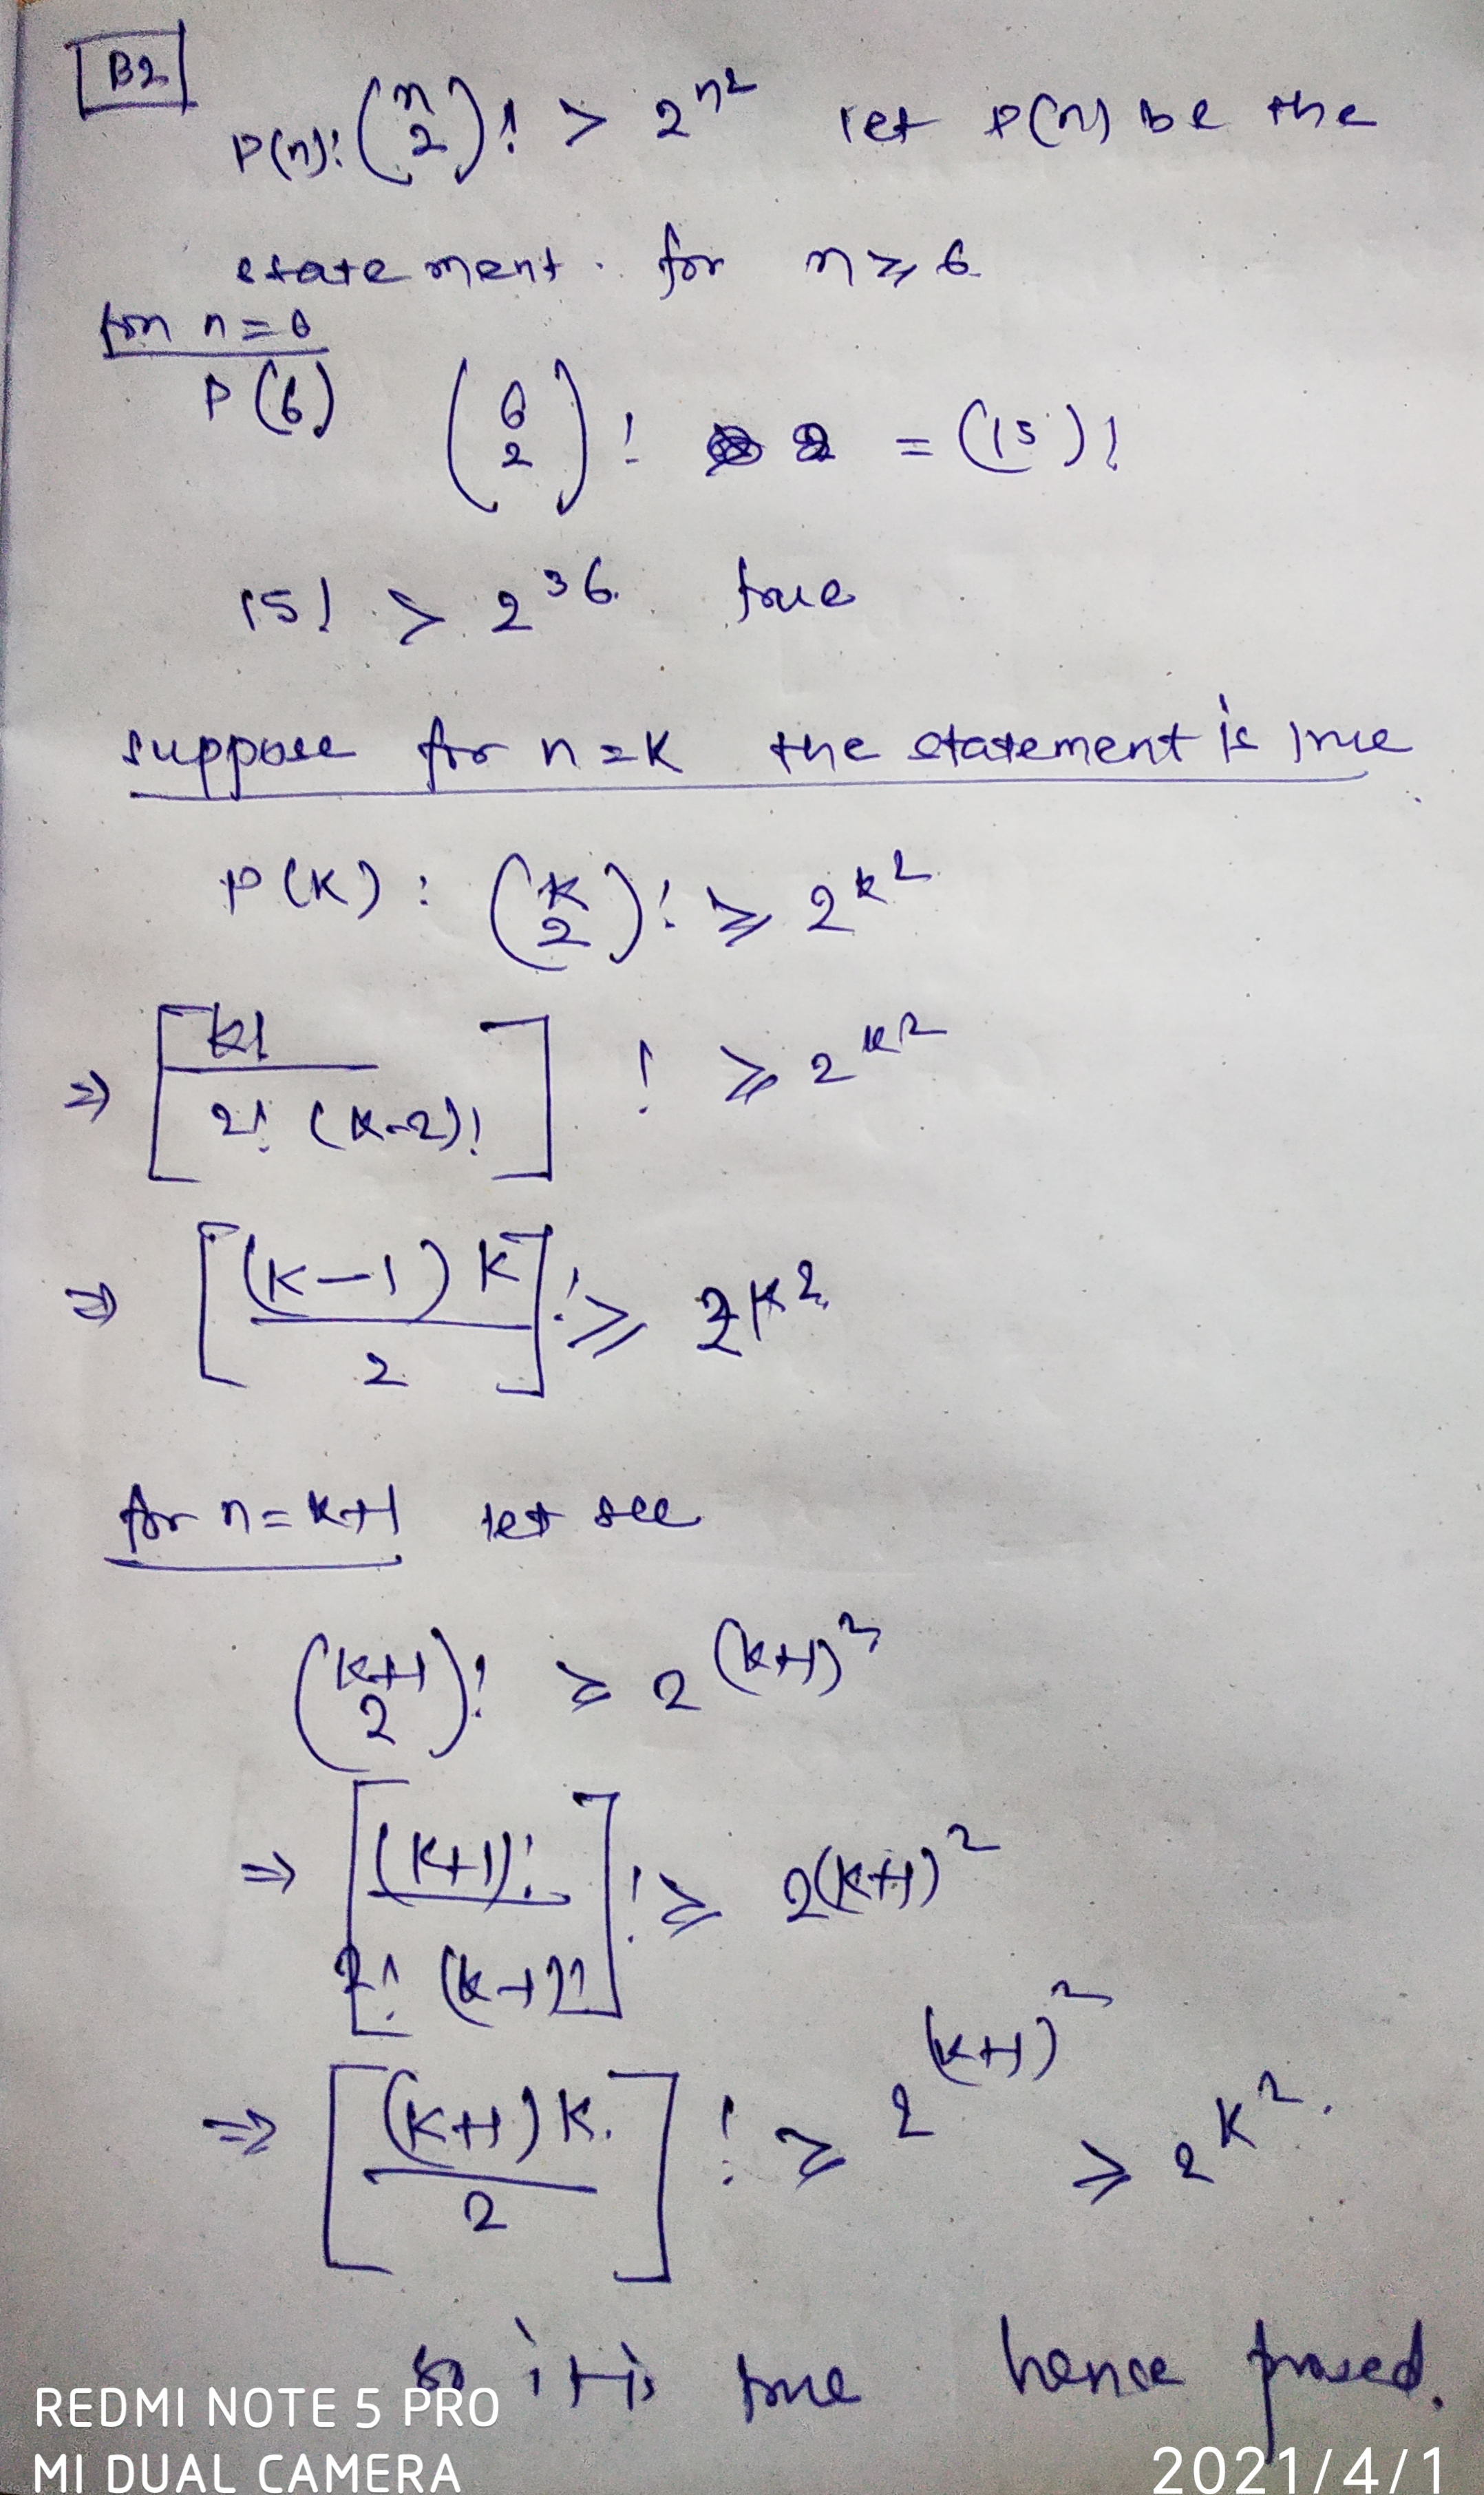 B2
P(n): (n 2)! > 2^n2 let P(n) be the
statement. for n ≥ 6
for n=6
P(6) (6 2)! = (15)!
15! > 2^36. true
suppose for n=k the statement is true
P(K) : (K 2)! ≥ 2^k2
⇒ [k! / 2! (k-2)!]! ≥ 2^k2
⇒ [(K-1) K / 2]! ≥ 2^K2
for n=k+1 let see
(k+1 2)! ≥ 2^(k+1)^2
⇒ [(K+1)! / 2! (k-1)!]! ≥ 2^(K+1)^2
⇒ [(K+1) K. / 2]! ≥ 2^(k+1)^2 ≥ 2^K2.
so it is true hence proved.
REDMI NOTE 5 PRO
MI DUAL CAMERA
2021/4/1